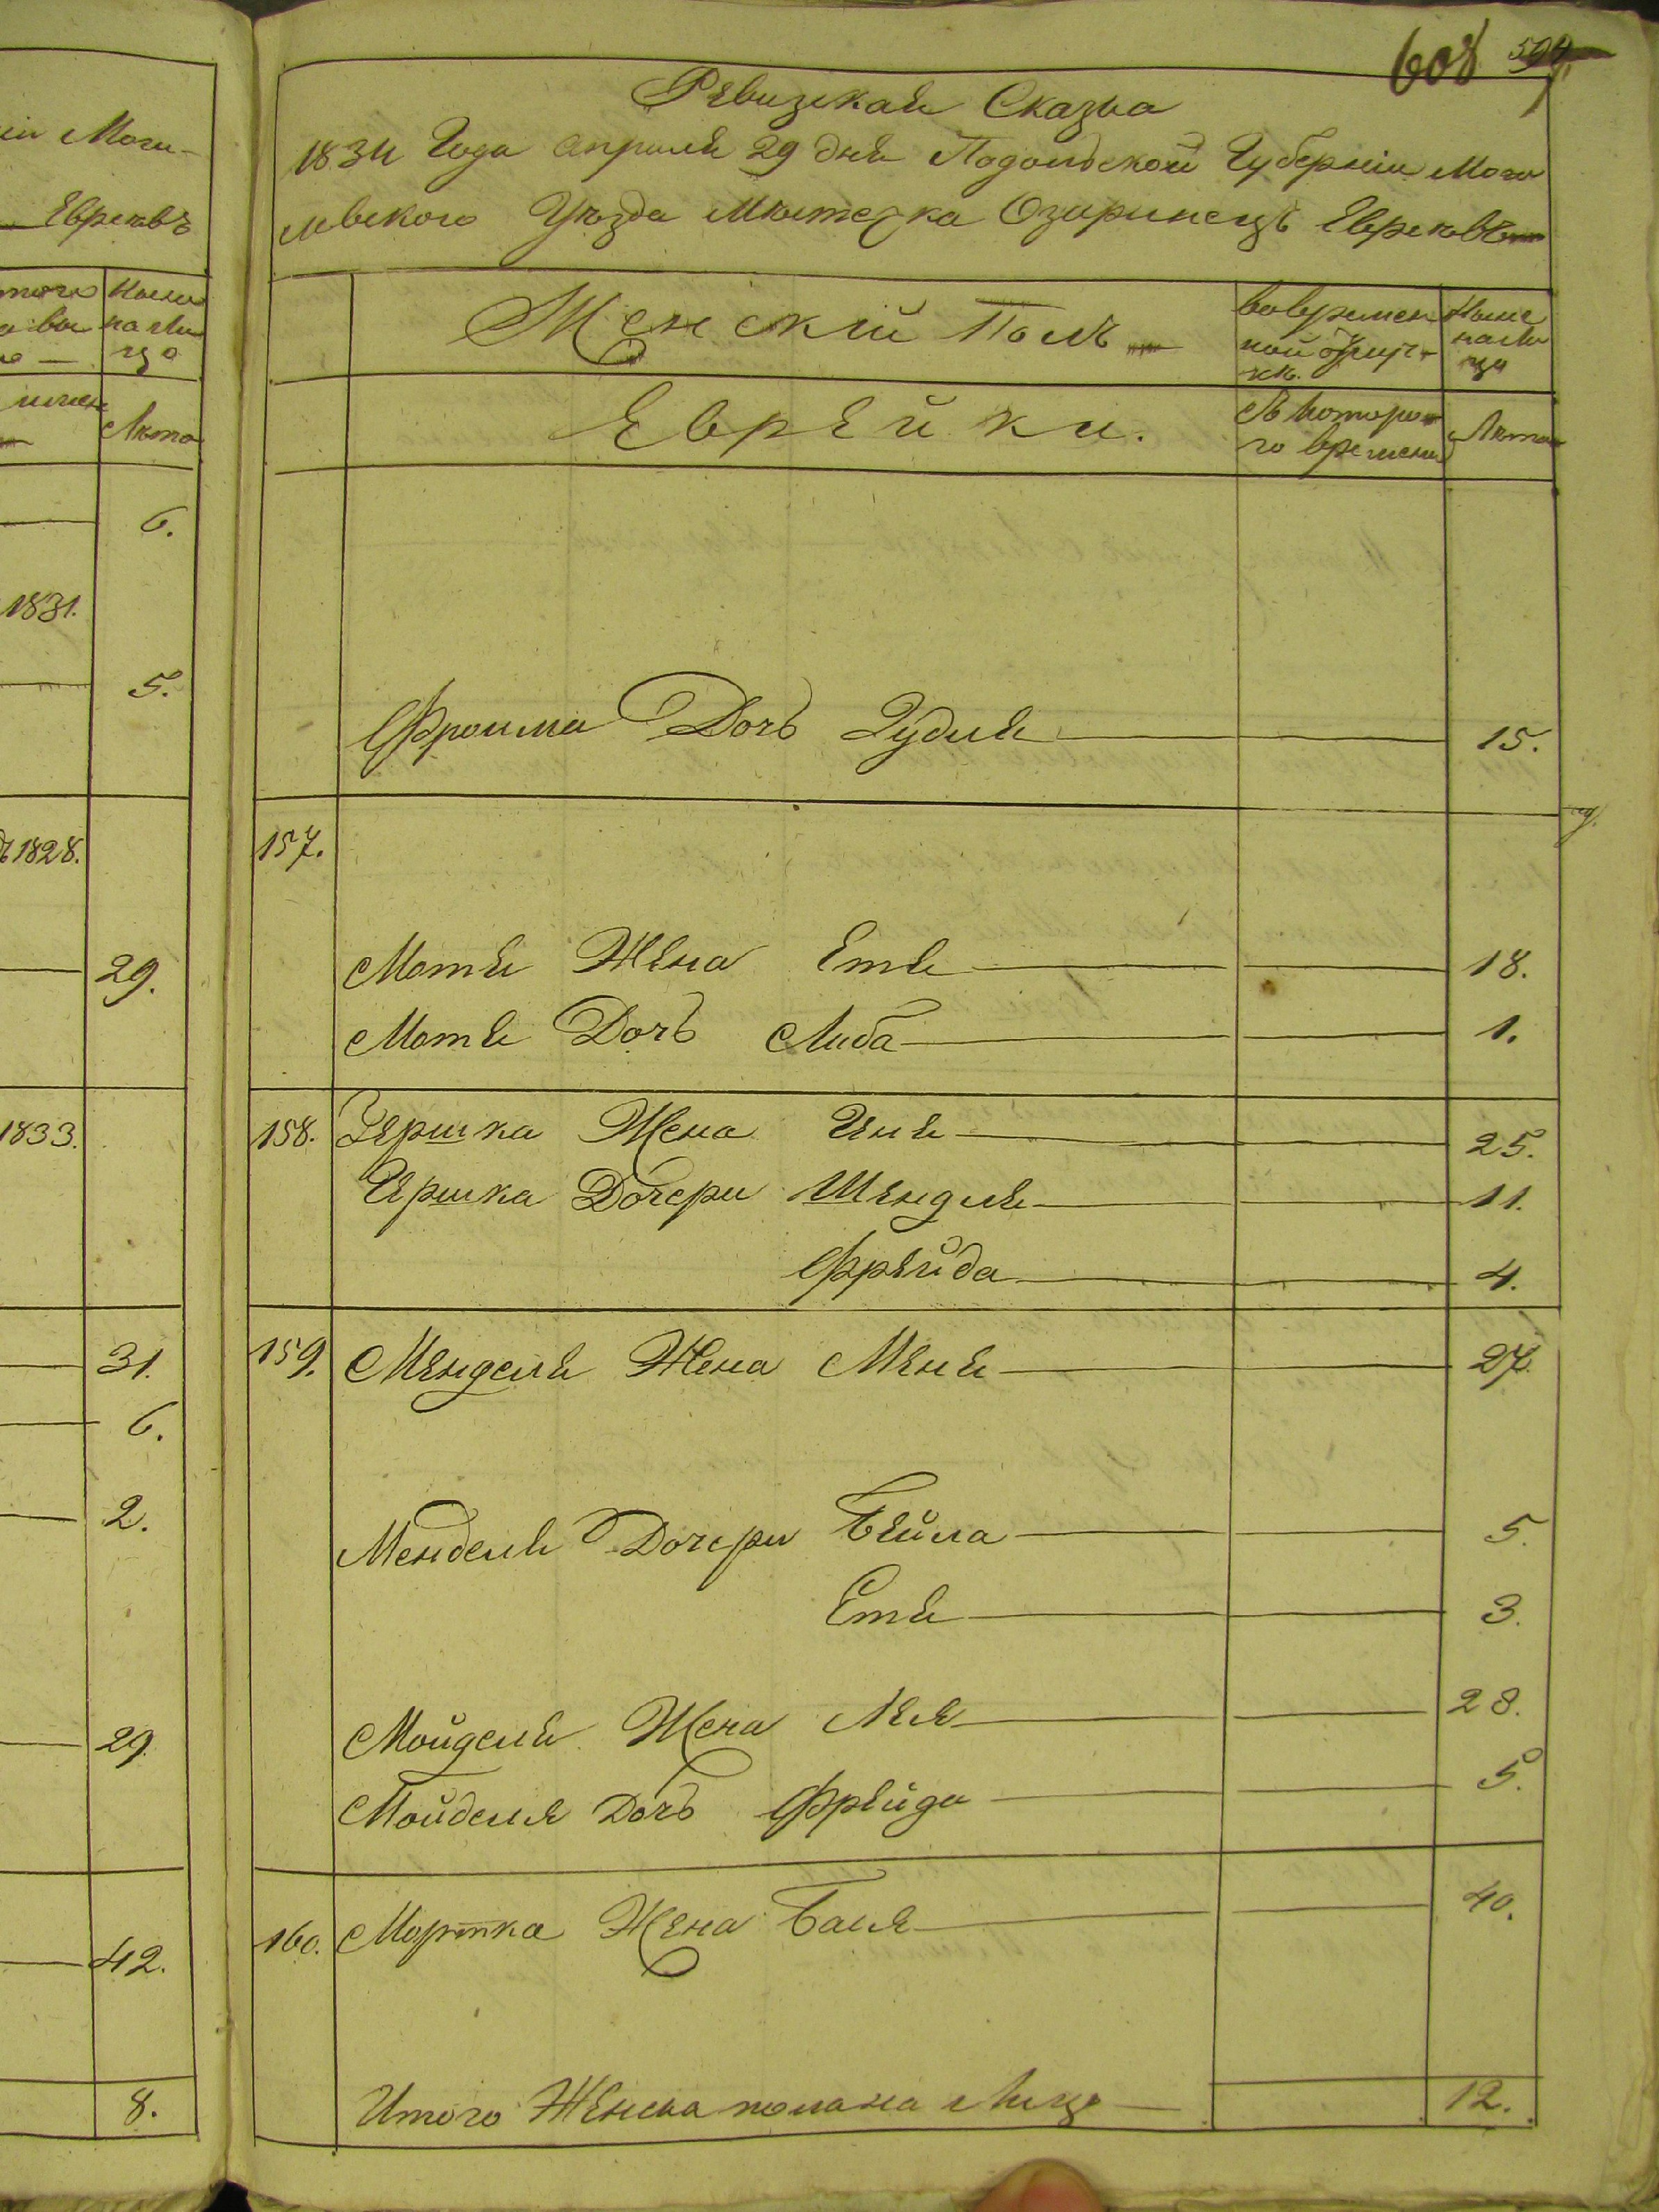 іи Моги-
Евреевъ
нали
ца
Лета
6.
1831.
5.
1828.
29.
1833.
31.
6.
2.
29
42.
8.
608 594
Ревизская Сказка
1834 Года Апреля 29 дня Подольской Губерніи Моги
левского Уезда Местечка Озаринецъ Евреевъ
Женский Полъ
вовремен
ной отлуч-
ке.
Ныне
нали
ца
Еврейки.
Съ которо-
го времени
Лета
Фроима Дочь Худия 15.
157.
Мотя Жена Етя 18.
Мотя Дочь Либа 1.
158. Гершка Жена Иня 25.
Гершка Дочери Шендля 11.
Фрейда 4.
159. Менделя Жена Меня 27.
Менделя Дочери Бейла 5.
Етя 3.
Мойделя Жена Лея 28.
Мойделя Дочь Фрейда 5.
160. Мортка Жена Бася 40.
Итого Женска пола на Лицо 12.